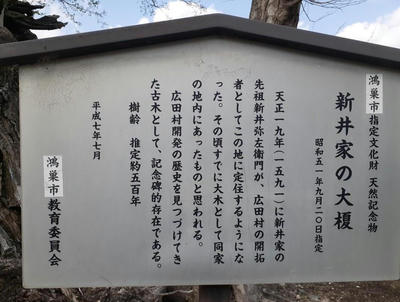 鴻巣市指定文化財 天然記念物
新井家の大榎
昭和五一年九月二〇日指定
天正一九年(一五九一)に新井家の
先祖新井弥左衛門が、広田村の開拓
者としてこの地に定住するようにな
った。その頃すでに大木として同家
の地内にあったものと思われる。
広田村開発の歴史を見つづけてき
た古木として、記念碑的存在である。
樹齢 推定約五百年
平成七年七月
鴻巣市教育委員会